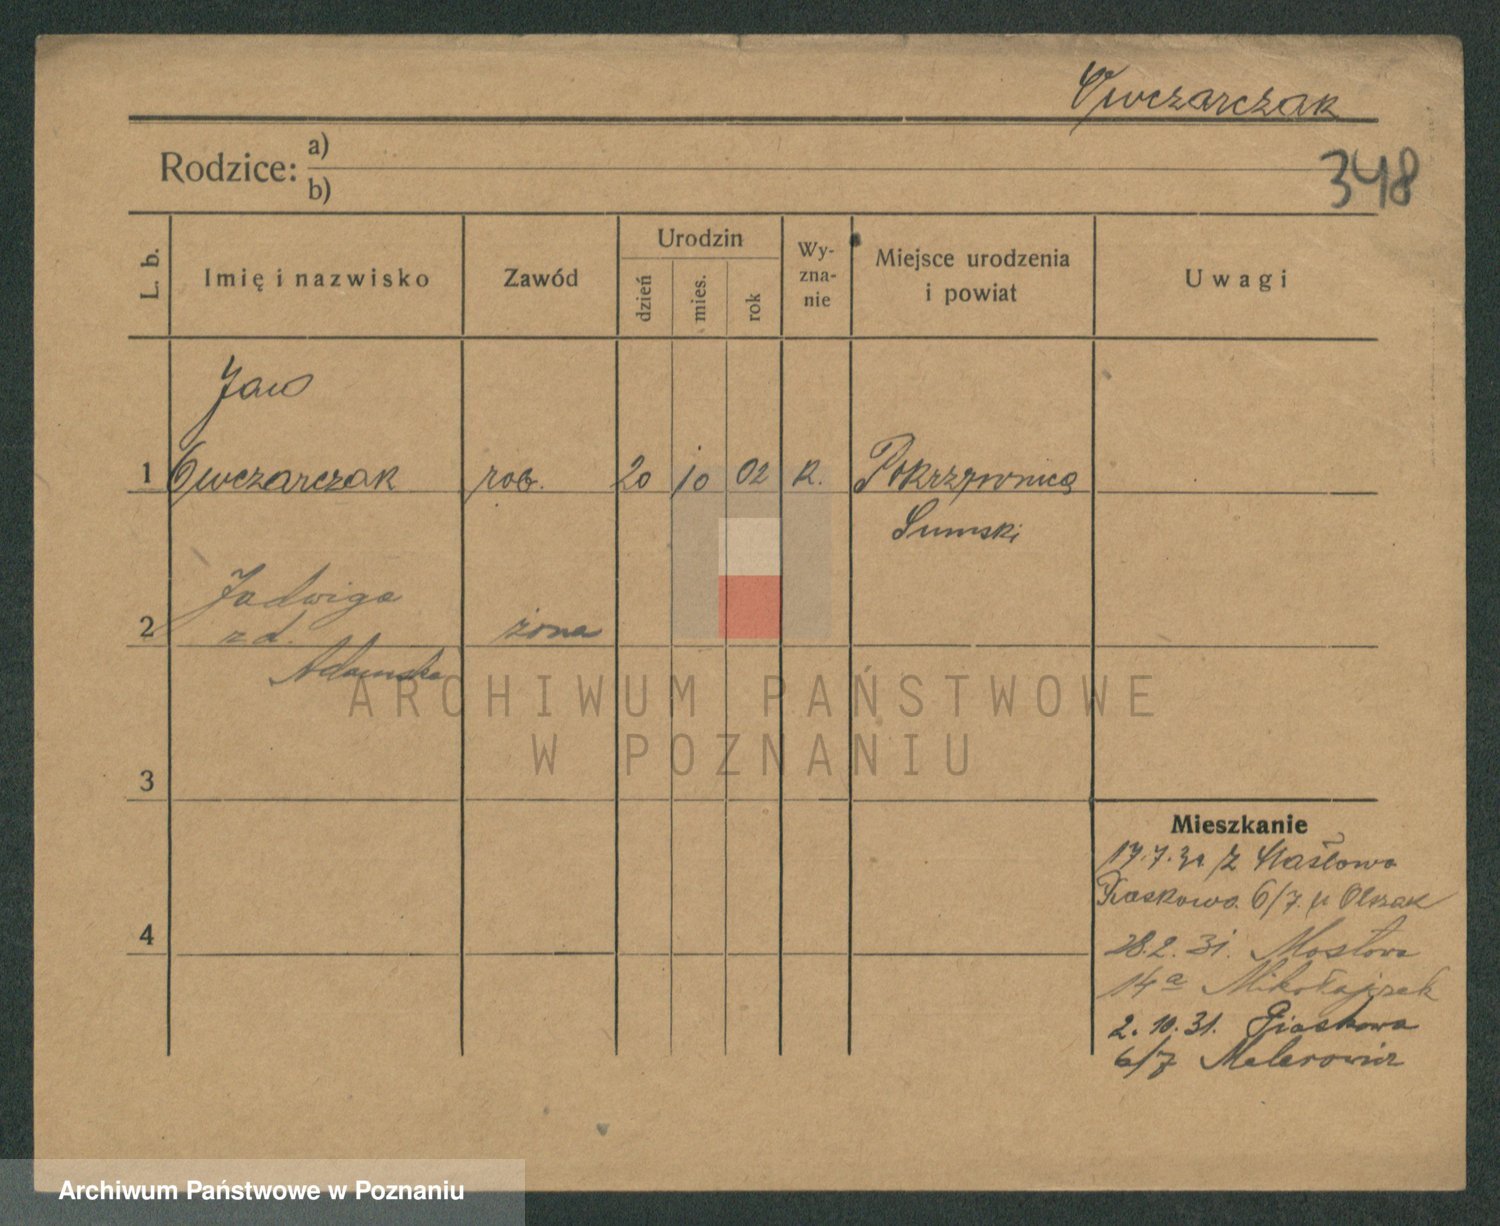 Owczarczak
348
Rodzice: a)
b)
L. b.
Imię i nazwisko
Zawód
Urodzin
dzień
mies.
rok
Wy-
zna-
nie
Miejsce urodzenia
i powiat
Uwagi
Jan
1 Owczarczak rob. 20 10 02 K. Pokrzywnica
Sremski
Jadwiga
2 zd. żona
Adamska
ARCHIWUM PAŃSTWOWE
W POZNANIU
3
Mieszkanie
17.7. z
Piaskowa 6/7. u Olszak
4
28.2.31. Mostowa
14a Mikołajczak
2.10.31. Piaskowa
6/7 Melerowicz
Archiwum Państwowe w Poznaniu